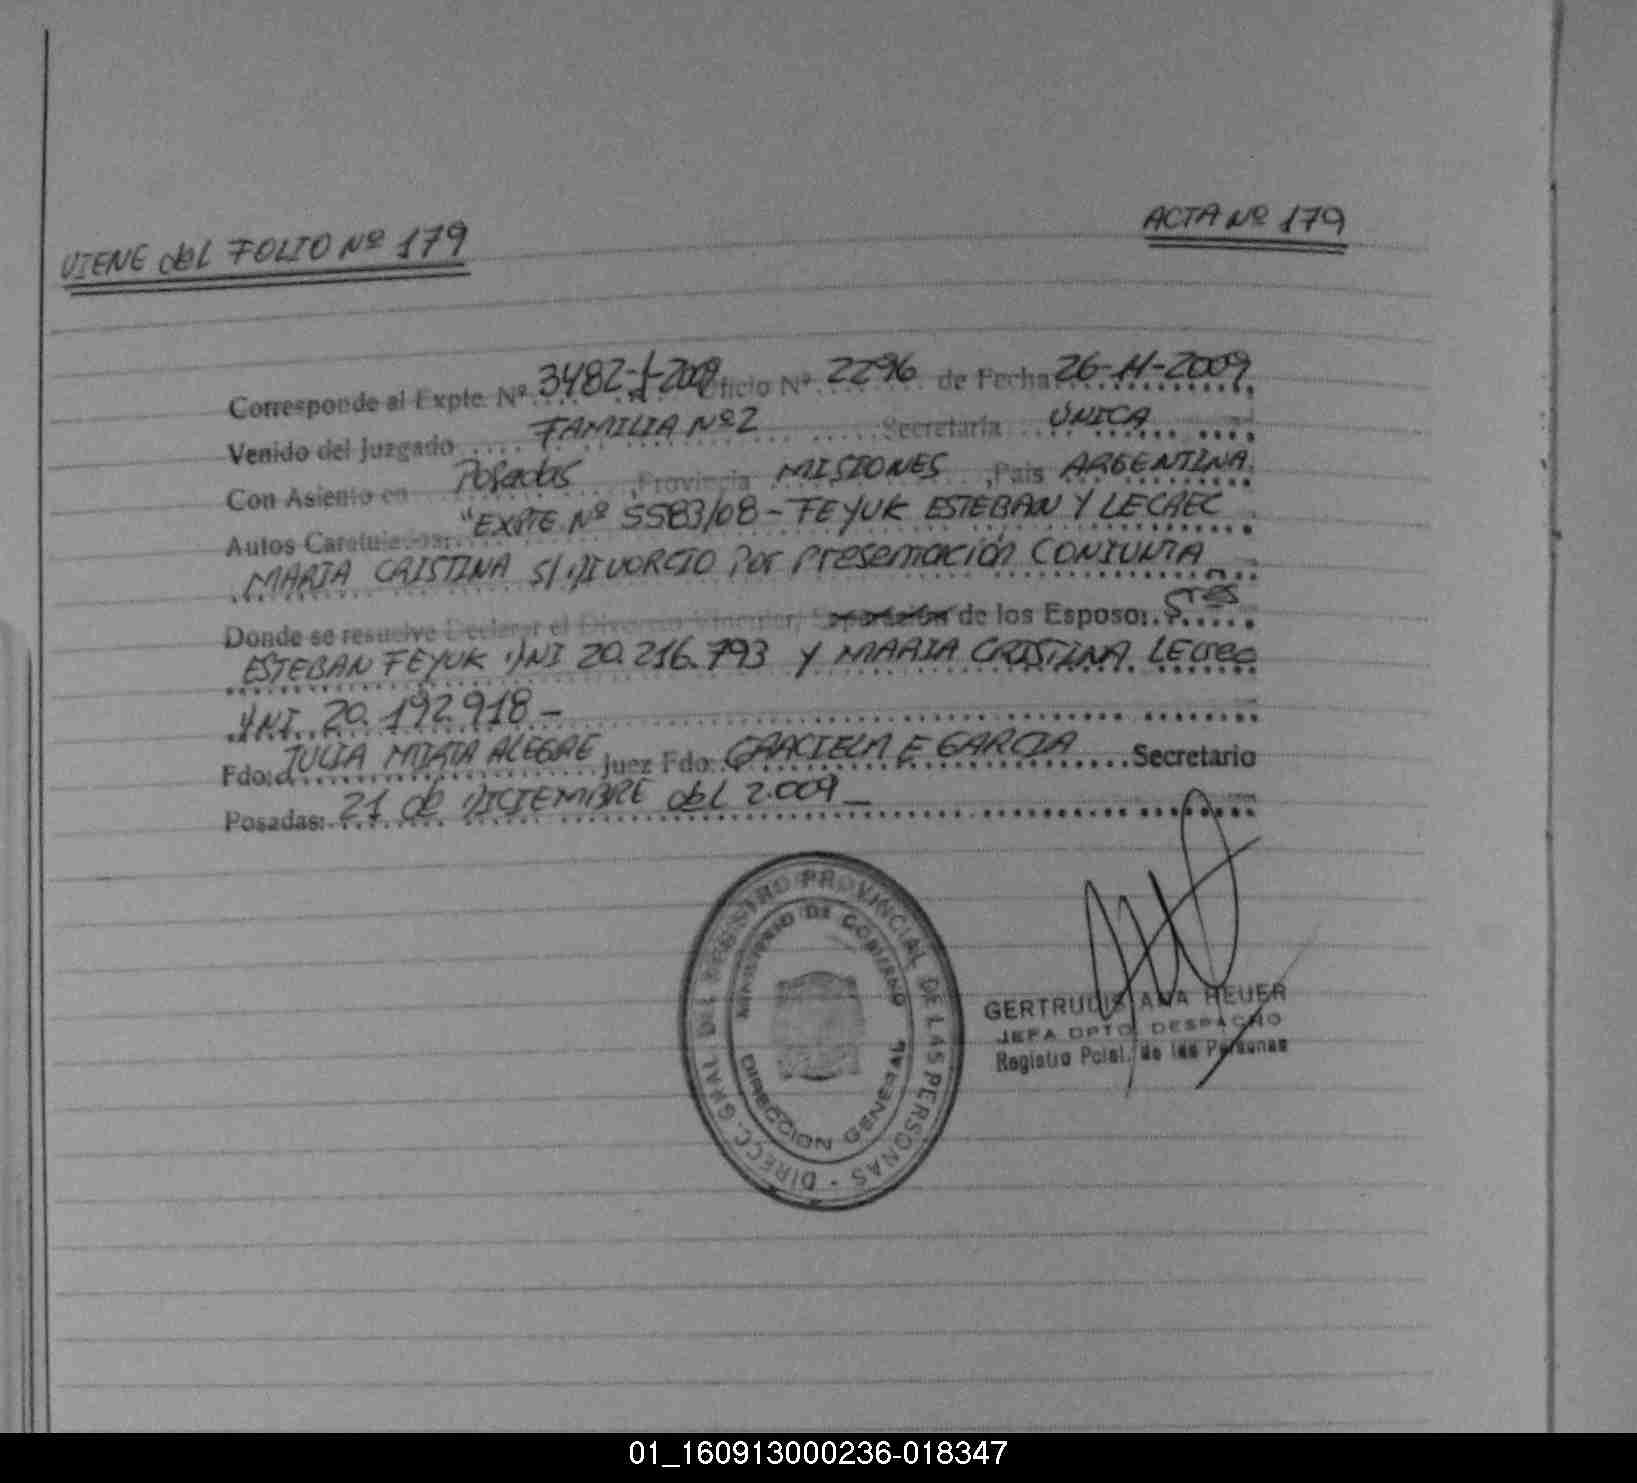 VIENE del FOLIO Nº 179
ACTA Nº 179
Corresponde al Expte. Nº 3482-f-2009 Oficio Nº 2296 de Fecha 26-11-2009
Venido del Juzgado FAMILIA Nº 2 Secretaria ÚNICA
Con Asiento en Posadas, Provincia MISIONES, Pais ARGENTINA.
Autos Caratulados: "EXPTE Nº 5583/08 - FEYUK ESTEBAN Y LECREC
MARIA CRISTINA S/ DIVORCIO Por Presentación CONJUNTA
Donde se resuelve Declarar el Divorcio Vincular/ Separación de los Esposo: Sres
ESTEBAN FEYUK DNI 20.216.793 Y MARIA CRISTINA LECREC
DNI. 20.192.918 -
Fdo: JULIA MIRTA ALEGRE Juez Fdo: GRACIELA E GARCIA Secretario
Posadas: 21 de DICIEMBRE del 2.009 -
DIRECC. GRAL DEL REGISTRO PROVINCIAL DE LAS PERSONAS
MINISTERIO DE GOBIERNO
DIRECCION GENERAL
GERTRUDIS ANA HEUER
JEFA DPTO. DESPACHO
Registro Pcial. de las Personas
01_160913000236-018347